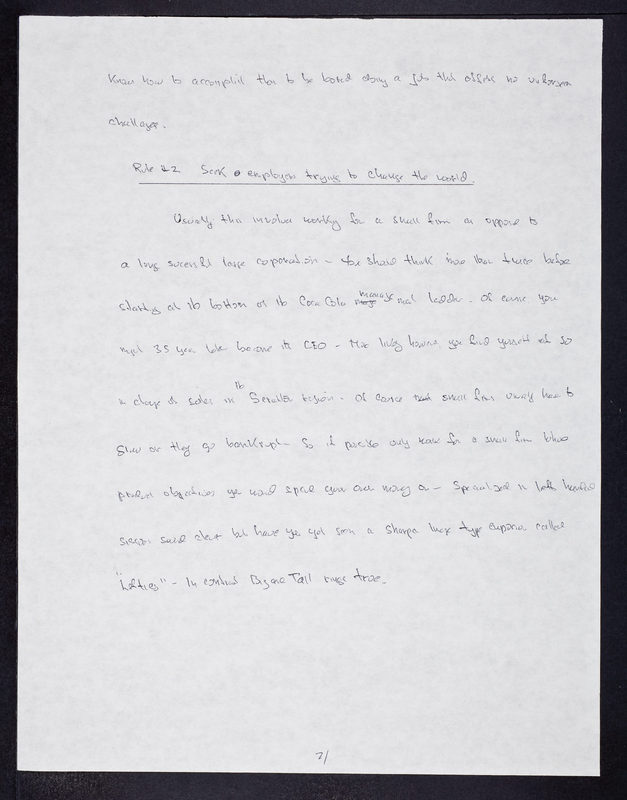 Know how to accomplish than to be bored doing a job that offers no unknown
challenges.
Rule #2 Seek employers trying to change the world.
Usually this involves working for a small firm as opposed to
a long successful large corporation - You should think more than twice before
starting at the bottom of the Coca Cola management ladder. Of course you
might 35 years later become its CEO - More likely however, you find yourself at 50
in charge of sales in the region. Of course small firms usually have to
grow or they go bankrupt. So if possible only work for a small firm whose
product objectives you would spend your own money on - Specialized in left handed
scissors sound clever but have you yet seen a Sharper Image type emporium called
"Lefties" - In contrast Big and Tall rings true.
2/